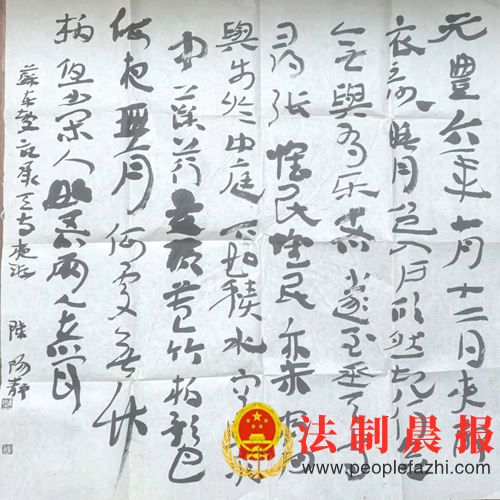 元豐六年十月十二日夜解
衣欲睡月色入戶欣然起行念
無與為樂者遂至承天寺
尋張懷民懷民亦未寢相
與步於中庭下如積水空明
中藻荇交橫蓋竹柏影也
何夜無月何處無竹
柏但少閑人如吾兩人者耳
蘇東坡記承天寺夜遊
靜
法制晨報
www.peoplefazhi.com